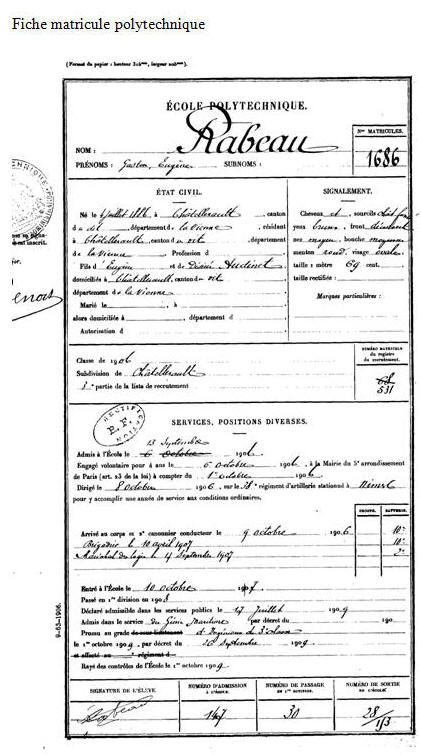 Fiche matricule polytechnique
(Format du papier : hauteur
ÉCOLE POLYTECHNIQUE.
NOM : Rabeau
Nos MATRICULES.
1686
PRÉNOMS : Gaston, Eugène SURNOMS :
ÉTAT CIVIL.
Né le 6 juillet 1886, à Châtellerault, canton
du dit, département de la Vienne, résidant
à Châtellerault, canton du dit, département
de la Vienne, Profession d
Fils d Eugène
et de Désirée Audinet
domiciliés à Châtellerault, canton du dit
département de la Vienne.
Marié le , à
alors domiciliée à , département d
Autorisation d
SIGNALEMENT.
Cheveux et sourcils
yeux bruns, front
nez moyen, bouche moyenne
menton rond, visage ovale.
taille : 1 mètre 69 cent.
taille rectifiée :
Marques particulières :
Classe de 1906
Subdivision de Châtellerault
partie de la liste de recrutement
NUMÉRO MATRICULE
du registre
du recrutement.
531
RECTIFIÉ
SERVICES, POSITIONS DIVERSES.
13 Septembre
Admis à l'École le 6 octobre 1906
Engagé volontaire pour 4 ans le 6 octobre 1906, à la Mairie du 5e arrondissement
de Paris (art. 23 de la loi) à compter du 1er octobre 1906
Dirigé le 8 octobre 1906, sur le 38e régiment d'artillerie stationné à Nîmes
pour y accomplir une année de service aux conditions ordinaires.
GROUPE. BATTERIE.
Arrivé au corps et 2e canonnier conducteur le 9 octobre 1906 10e
Brigadier le 10 avril 1907 10e
Maréchal des logis le 4 Septembre 1907
Entré à l'École le 10 octobre 1907
Passé en 1re division en 1908
Déclaré admissible dans les services publics le 17 juillet 1909
Admis dans le service du Génie Maritime par décret du 190
Promu au grade de sous-lieutenant d'Ingénieur de 3e classe
le 1er octobre 1909, par décret du Septembre 1909
et affecté au régiment d
Rayé des contrôles de l'École le 1er octobre 1909
9-63-1906.
SIGNATURE DE L'ÉLÈVE
NUMÉRO D'ADMISSION
À L'ÉCOLE.
147
NUMÉRO DE PASSAGE
EN 1re DIVISION.
30
NUMÉRO DE SORTIE
DE L'ÉCOLE.
28